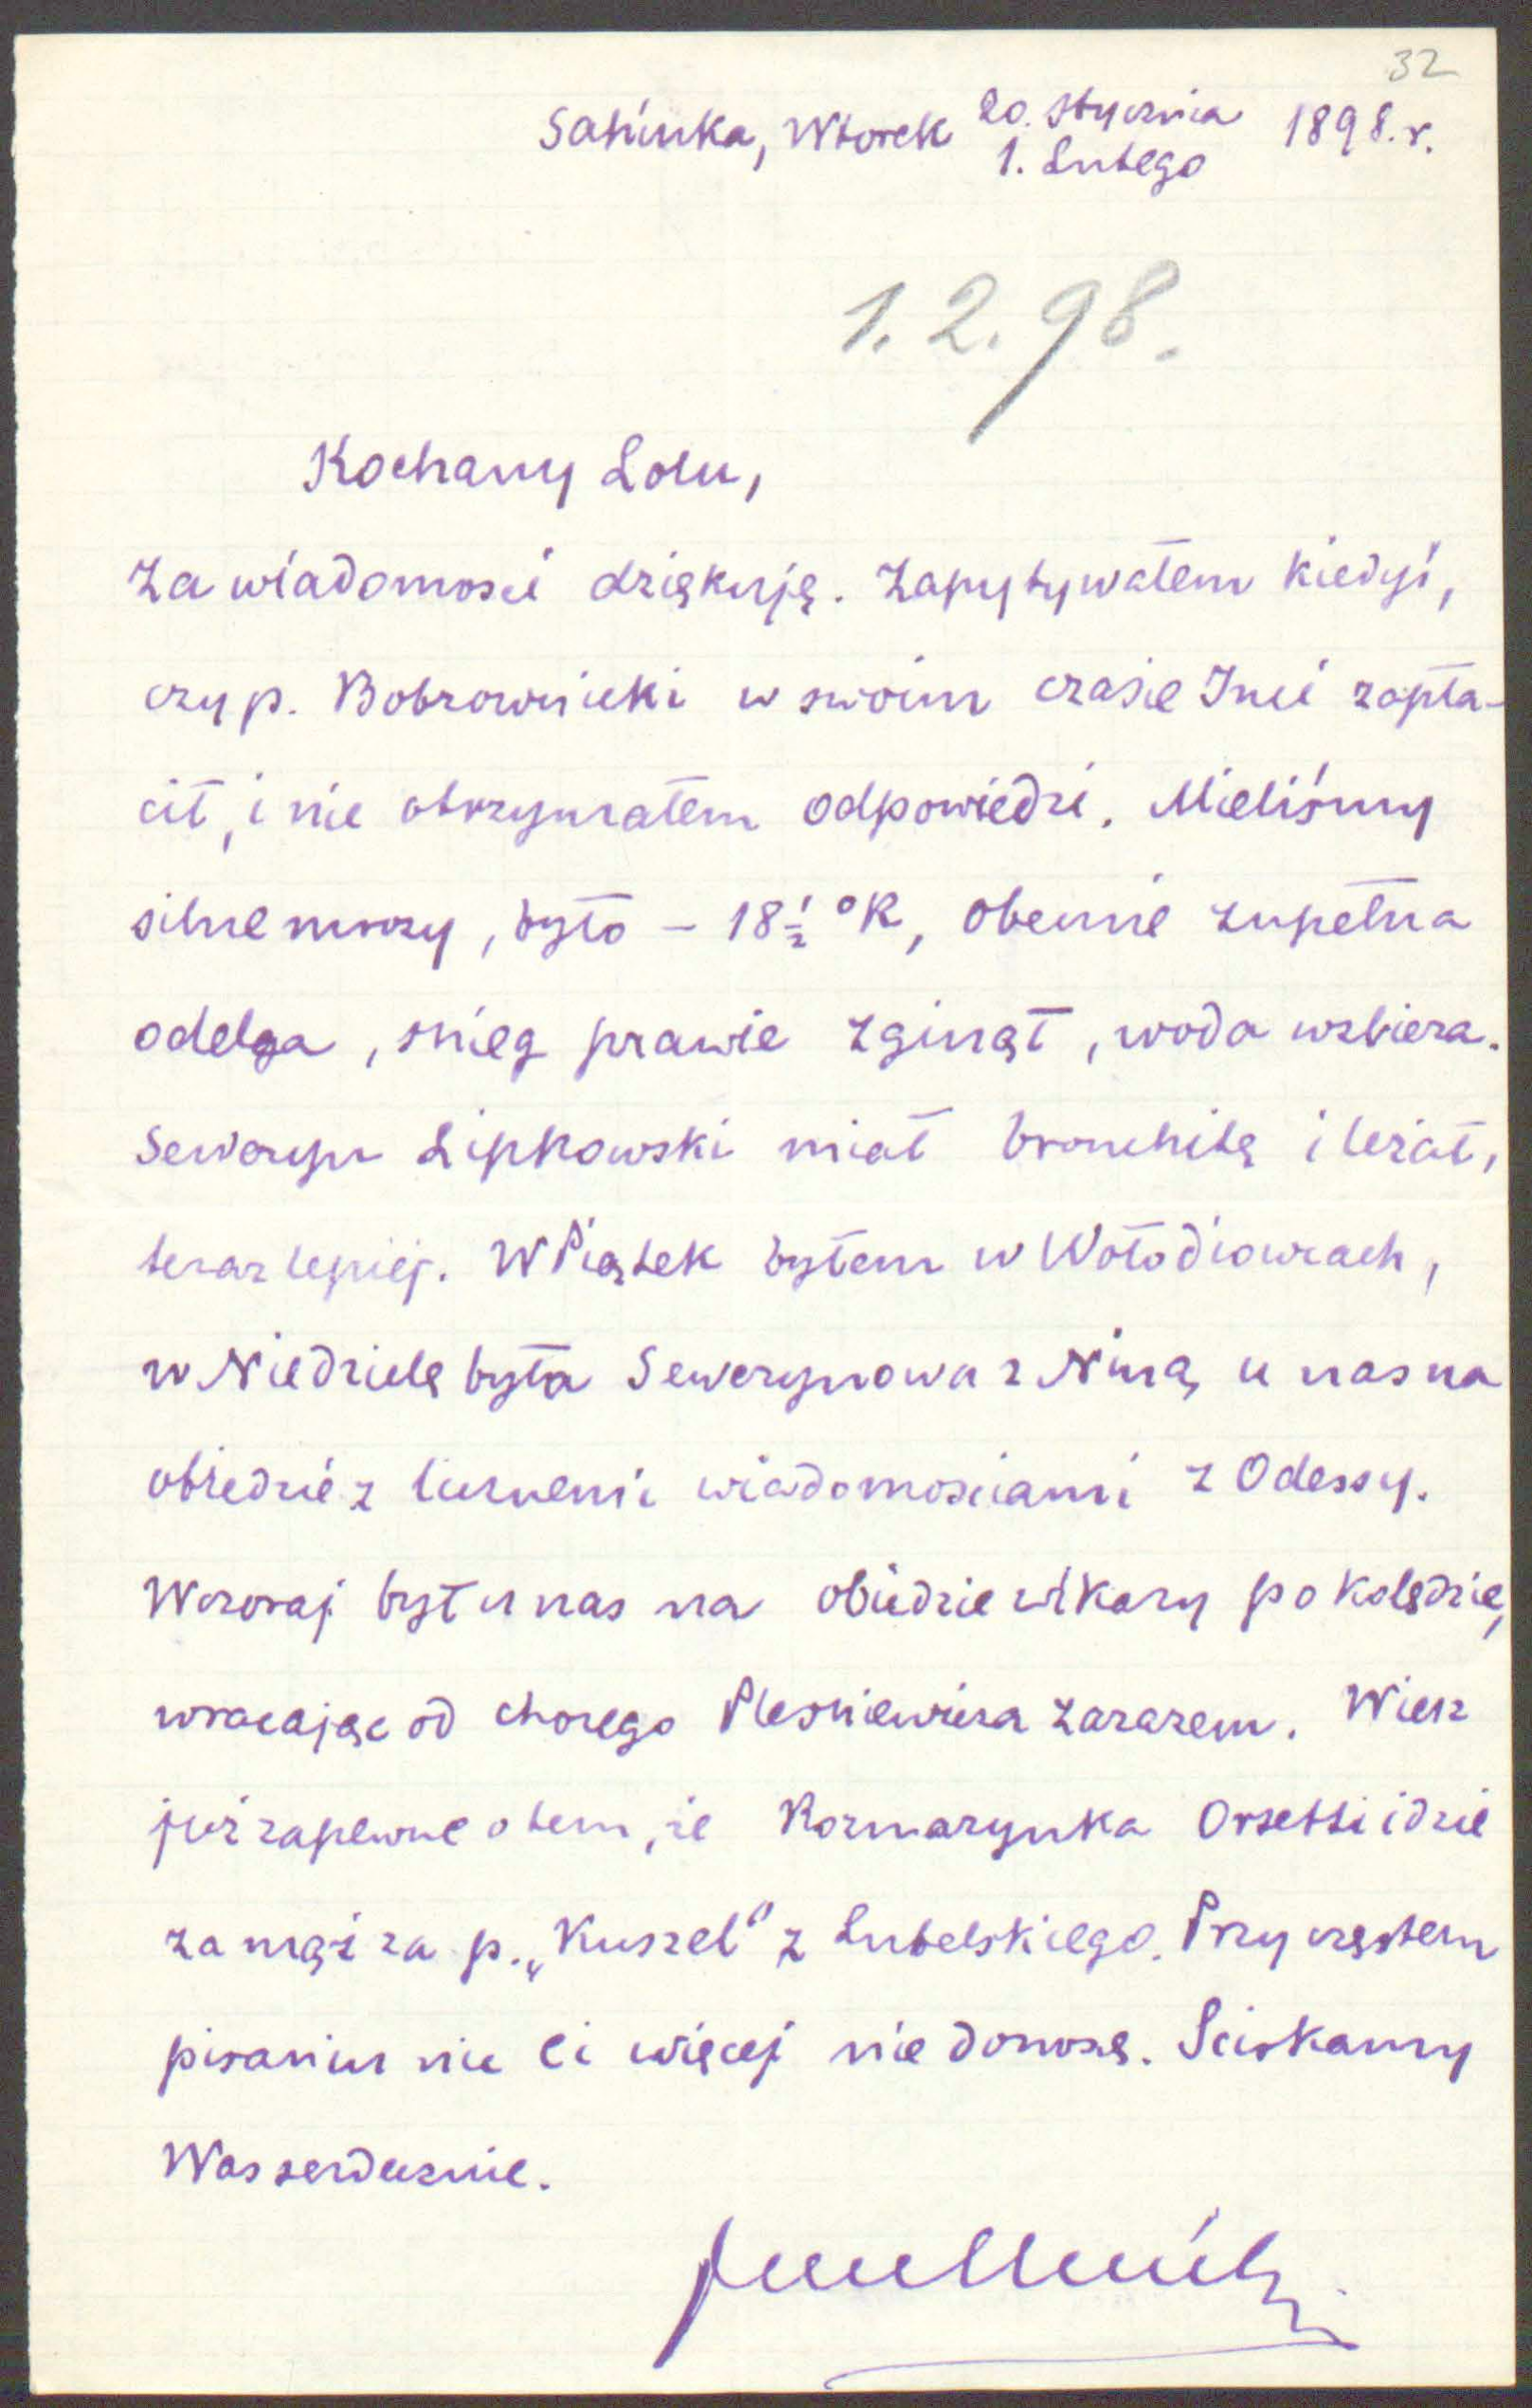 32
Sahinka, Wtorek 20. Stycznia 1898. r.
1. Lutego
1. 2. 98.
Kochany Lolu,
Za wiadomości dziękuję. Zapytywałem kiedyś,
czy p. Bobrownicki w swoim czasie Inci zapła-
cił, i nie otrzymałem odpowiedzi. Mieliśmy
silne mrozy, było – 18½ °R, obecnie zupełna
odelga, śnieg prawie zginął, woda wzbiera.
Seweryn Lipkowski miał bronchitę i leżał,
teraz lepiej. W Piątek byłem w Wołodiowcach,
w Niedzielę była Sewerynowa z Niną u nas na
obiedzie z licznemi wiadomościami z Odessy.
Wczoraj był u nas na obiedzie wikary po kolędzie,
wracając od chorego Pleśniewicza zarazem. Wiesz
już zapewne o tem, że Rozmarynka Orsetti idzie
za mąż za p. „Kuszel" z Lubelskiego. Przy częstem
pisaniu nic Ci więcej nie donoszę. Ściskamy
Was serdecznie.